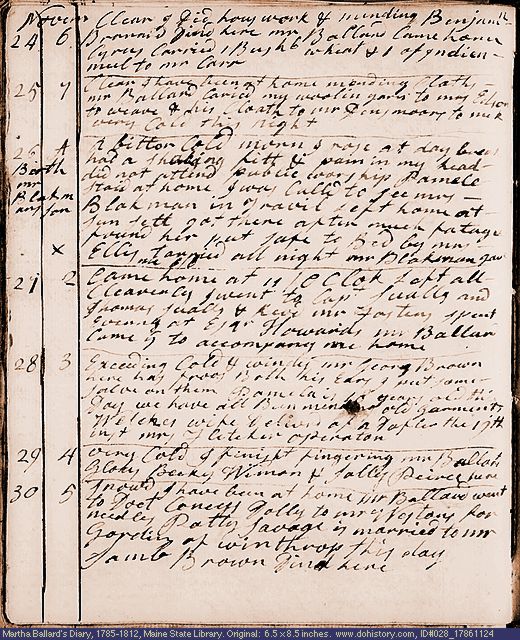 Novm Clear I did hous work & mending Benjamin
24 6 Bernard Dind here mr Ballard Came home
Cyrus Carried 1 Bushl wheat & 1 of yndien
mul to mr Carr
25 7 Clear I have been at home mending Cloths
mr Ballard Caried my woolin yarn to mrs Edson
to weave & his Cloath to mr Densmoors to make
very Cold this night
26 A A bitter Cold morn I rose at day break
Birth had a shaking fitt & pain in my head
mr did not attend public worship Pamele
Blakm staid at home I was Calld to see mrs
ans son Blakman in gravil left home at
sun sett got there after much fatage
found her put safe to Bed by mrs
x Ellis tarried all night mr Blakman gave
me
27 2 Came home at 11 C Clok left all
Cleaverly I went to Capt Sualls and
Thomas Sualls & Reverend mr Fosters spent
Evening at Esqr Howards mr Ballard
Came to accompany me home
28 3 Exceeding Cold & windy mr Georg Brown
here has froos Both his Ears I put some
salve on them Pamela is years old this
Day we have all Been mending old garments
Welches wife Delivrd of a Dafter the 19th
inst mrs Fletcher operator
29 4 very Cold I finisht fingering mr Ballards
Gloves Beckey Wiman & Sally Peirce here
30 5 Snowd I have been at home mr Ballard went
to Doct Coneys Dolly to mrs Westons for
needles Patty Savage is married to mr
Gording of winthrop this day
Samll Brown Dind here
Martha Ballard's Diary, 1785-1812, Maine State Library. Original: 6.5 x 8.5 inches. www.dohistory.com, ID#028_17861124